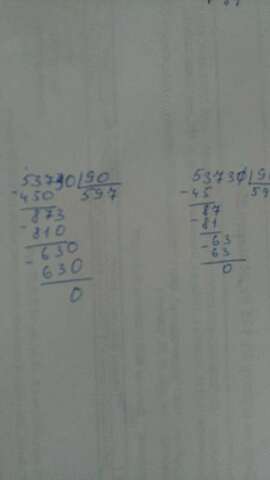 53730 90
- 450 597
873
- 810
- 630
630
0
53730 9
- 45 59
87
- 81
63
- 63
0